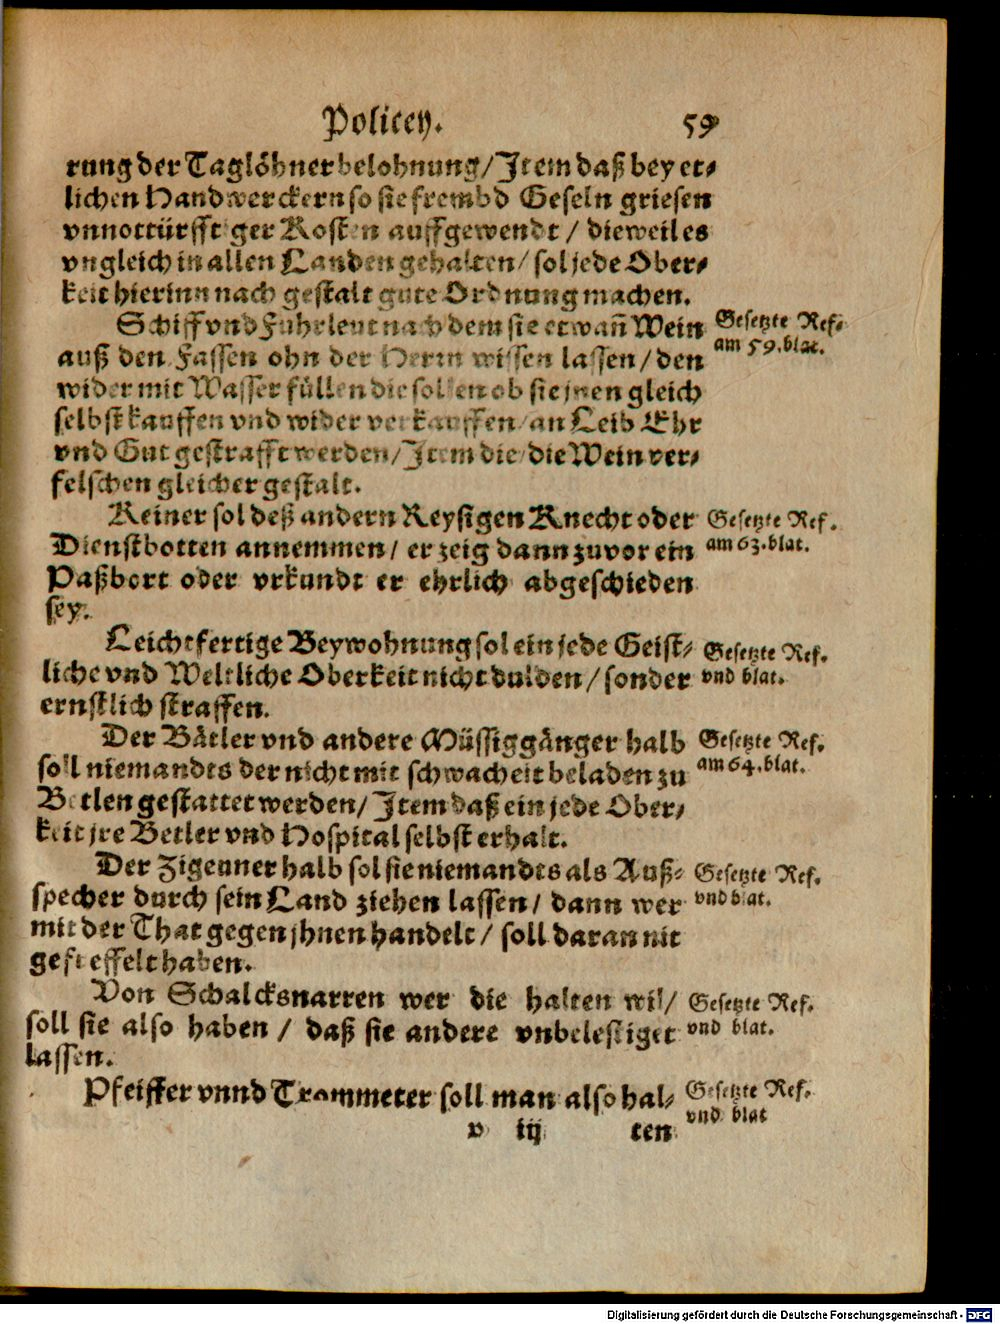 Policey. 59
rung der Taglöhner belohnung / Item daß bey et⸗
lichen Handwerckern so sie frembd Geseln griesen
vnnottürfftiger Kosten auffgewendt / dieweil es
vngleich in allen Landen gehalten / sol jede Ober⸗
keit hierinn nach gestalt gute Ordnung machen.
Schiff vnd Fuhrleut nach dem sie etwañ Wein
Gesetzte Ref.
auß den Fassen ohn der Herrn wissen lassen / den
am 59. blat.
wider mit Wasser füllen die sollen ob sie jnen gleich
selbst kauffen vnd wider verkauffen / an Leib Ehr
vnd Gut gestrafft werden / Item die / die Wein ver⸗
felschen gleicher gestalt.
Keiner sol deß andern Reysigen Knecht oder
Gesetzte Ref.
Dienstbotten annemmen / er zeig dann zuvor ein
am 63. blat.
Paßbort oder vrkundt er ehrlich abgeschieden
sey.
Leichtfertige Beywohnung sol ein jede Geist⸗
Gesetzte Ref.
liche vnd Weltliche Oberkeit nicht dulden / sonder
vnd blat.
ernstlich straffen.
Der Bätler vnd andere Müssiggänger halb
Gesetzte Ref.
soll niemandts der nicht mit schwacheit beladen zu
am 64. blat.
Betlen gestattet werden / Item daß ein jede Ober⸗
keit jre Betler vnd Hospital selbst erhalt.
Der Zigeuner halb sol sie niemandts als Auß⸗
Gesetzte Ref.
specher durch sein Land ziehen lassen / dann wer
vnd blat.
mit der That gegen jhnen handelt / soll daran nit
gefreffelt haben.
Von Schalcksnarren wer die halten wil /
Gesetzte Ref.
soll sie also haben / daß sie andere vnbelestiget
vnd blat.
lassen.
Pfeiffer vnnd Trommeter soll man also hal⸗
Gesetzte Ref.
vnd blat
v iij ten
Digitalisierung gefördert durch die Deutsche Forschungsgemeinschaft - DFG